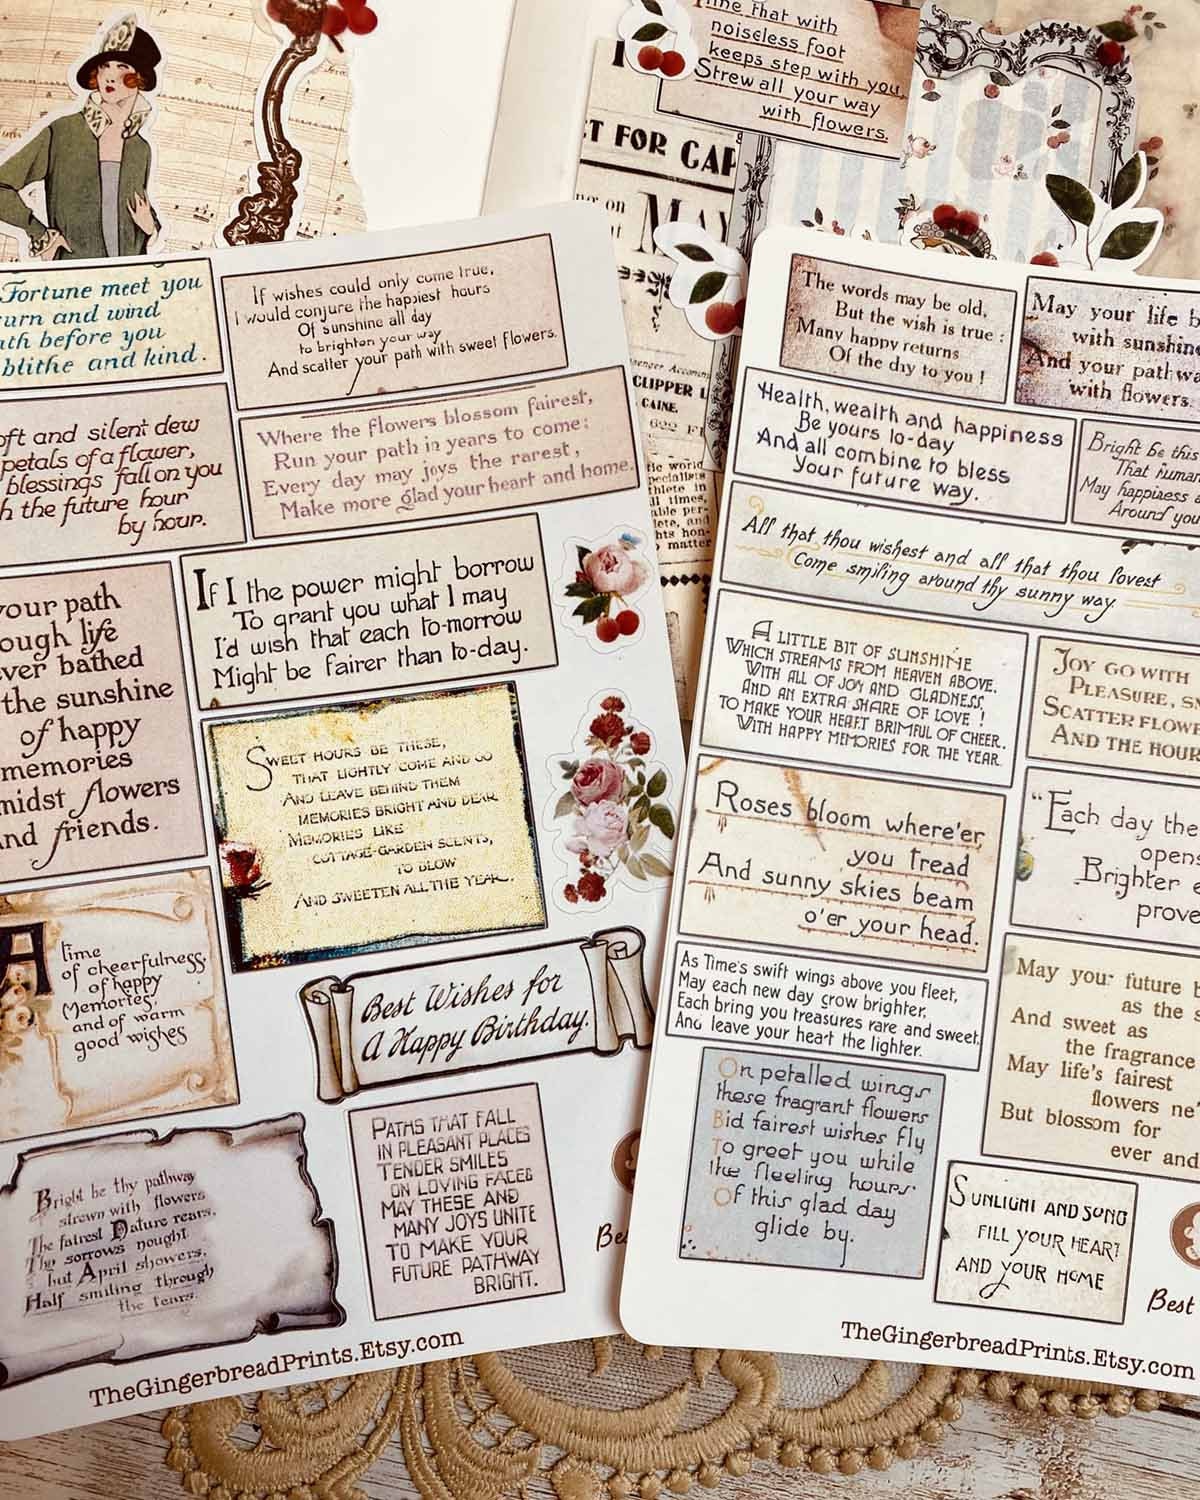 Time that with
noiseless foot
keeps step with you,
Strew all your way
with flowers.
T FOR CAP
on MAY
CLIPPER
CAINE.
622
matter
Fortune meet you
turn and wind
before you
blithe and kind.
If wishes could only come true,
I would conjure the happiest hours
Of sunshine all day
to brighten your way
And scatter your path with sweet flowers.
oft and silent dew
petals of a flower,
blessings fall on you
the future hour
by hour.
Where the flowers blossom fairest,
Run your path in years to come:
Every day may joys the rarest,
Make more glad your heart and home.
your path
ough life
ver bathed
the sunshine
of happy
memories
midst flowers
and friends.
If I the power might borrow
To grant you what I may
I'd wish that each to-morrow
Might be fairer than to-day.
SWEET HOURS BE THESE,
THAT LIGHTLY COME AND GO
AND LEAVE BEHIND THEM
MEMORIES BRIGHT AND DEAR,
MEMORIES LIKE
COTTAGE-GARDEN SCENTS,
TO BLOW
AND SWEETEN ALL THE YEAR.
A time
of cheerfulness,
of happy
Memories,
and of warm
good wishes
Best Wishes for
A Happy Birthday.
Bright be thy pathway
strewn with flowers
The fairest Nature rears,
Thy sorrows nought
but April showers,
Half smiling through
the tears.
PATHS THAT FALL
IN PLEASANT PLACES
TENDER SMILES
ON LOVING FACES
MAY THESE AND
MANY JOYS UNITE
TO MAKE YOUR
FUTURE PATHWAY
BRIGHT.
TheGingerbreadPrints.Etsy.com
The words may be old,
But the wish is true:
Many happy returns
Of the day to you!
May your life b
with sunshine
And your pathwa
with flowers.
Health, wealth and happiness
Be yours to-day
And all combine to bless
Your future way.
Bright be this
That human
May happiness
Around you
All that thou wishest and all that thou lovest
Come smiling around thy sunny way.
A LITTLE BIT OF SUNSHINE
WHICH STREAMS FROM HEAVEN ABOVE,
WITH ALL OF JOY AND GLADNESS,
AND AN EXTRA SHARE OF LOVE!
TO MAKE YOUR HEART BRIMFUL OF CHEER.
WITH HAPPY MEMORIES FOR THE YEAR.
JOY GO WITH
PLEASURE, S
SCATTER FLOWE
AND THE HOUR
Roses bloom where'er
you tread
And sunny skies beam
o'er your head.
"Each day the
opens
Brighter
prove
As Time's swift wings above you fleet,
May each new day grow brighter,
Each bring you treasures rare and sweet,
And leave your heart the lighter.
May your future b
as the s
And sweet as
the fragrance
May life's fairest
flowers ne'
But blossom for
ever and
On petalled wings
these fragrant flowers
Bid fairest wishes fly
To greet you while
the fleeting hours
Of this glad day
glide by.
SUNLIGHT AND SONG
FILL YOUR HEART
AND YOUR HOME
Best
TheGingerbreadPrints.Etsy.com